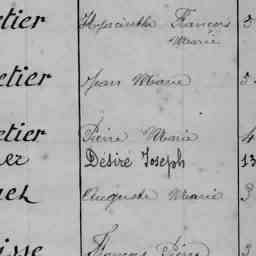 etier Hyacinthe François 5
Marie
etier Jean Marie 5
etier Pierre Marie 4
er Désiré Joseph 13
el Auguste Marie 3
isse François Pierre 3